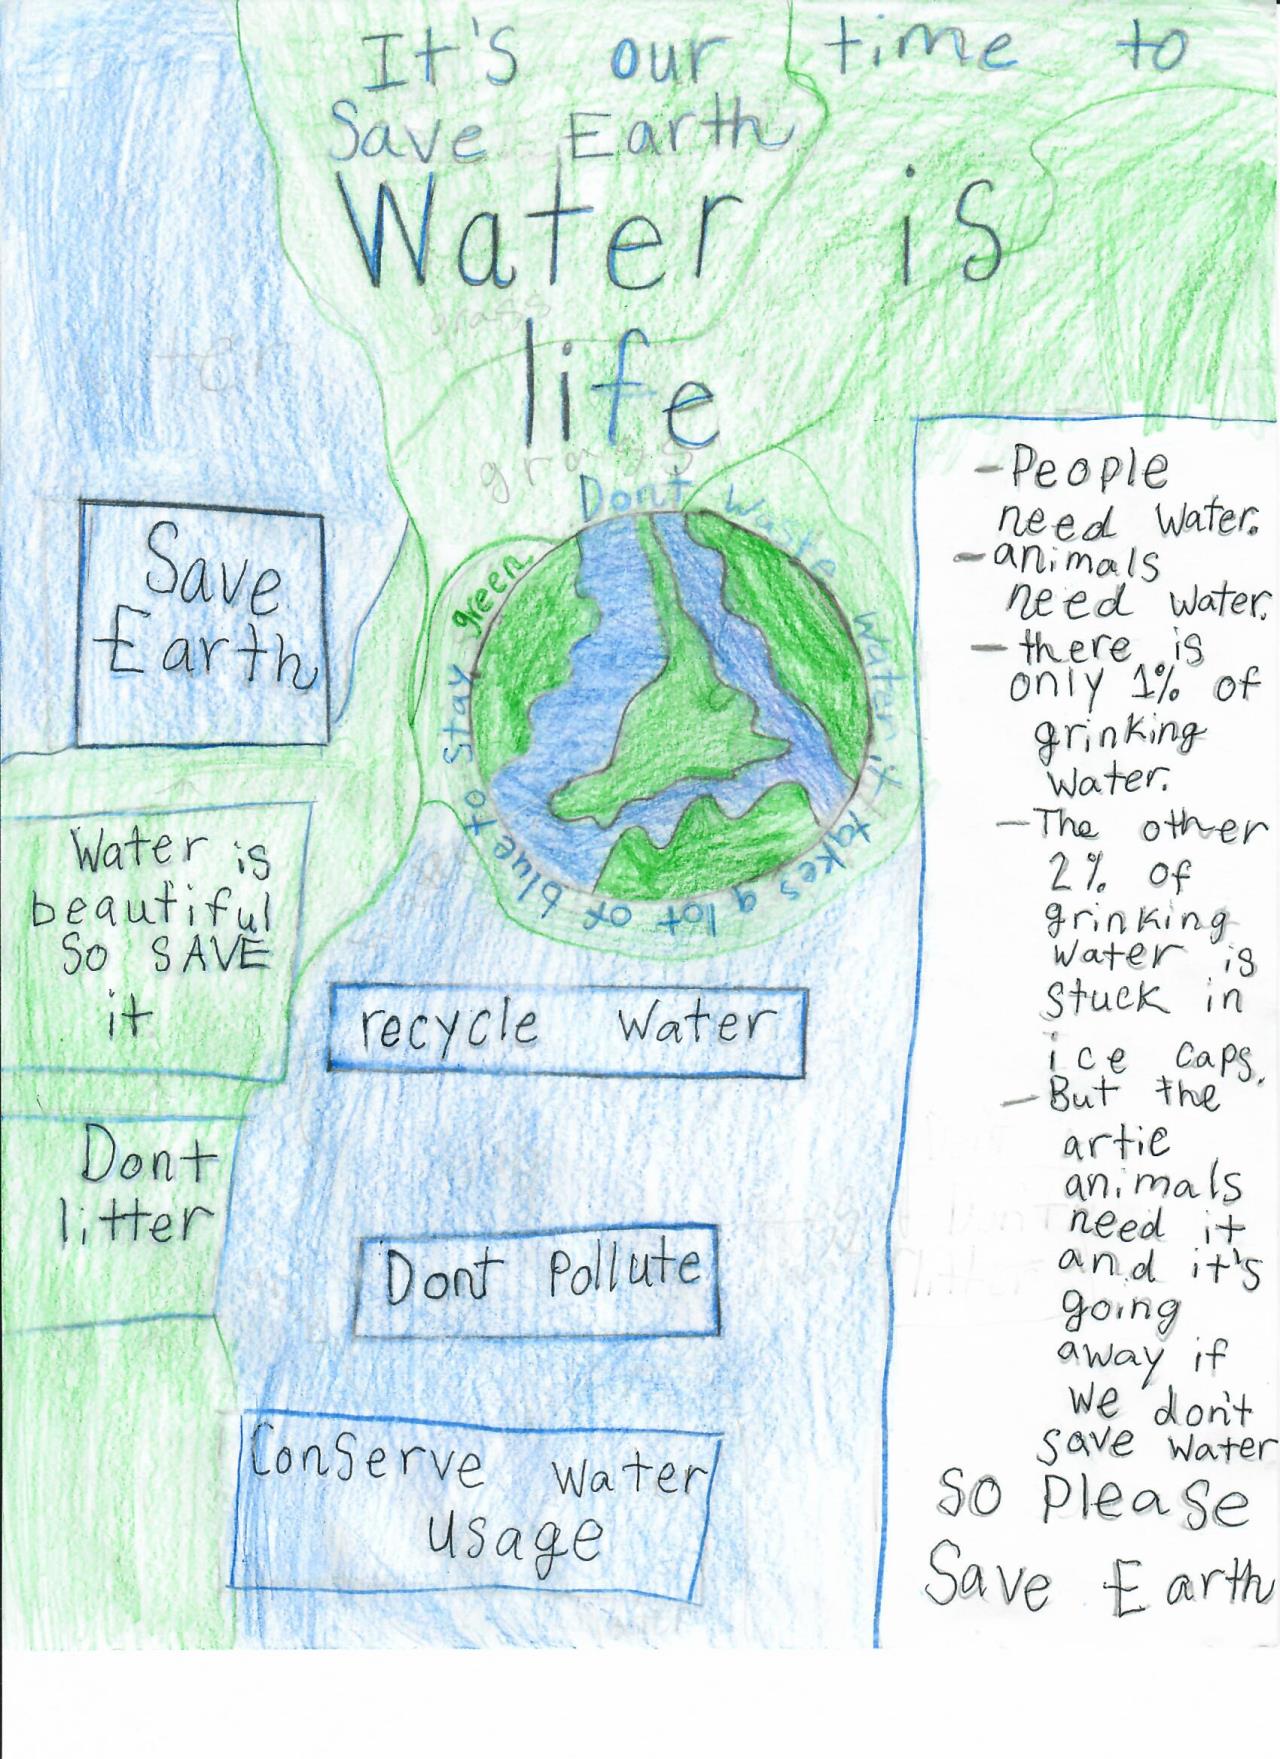 It's our time to
Save Earth
Water is
life
grass
Dont waste water it takes a lot of blue to stay green
Save
Earth
Water is
beautiful
So SAVE
it
Dont
litter
recycle water
Dont Pollute
Conserve water
usage
- People
need water.
- animals
need water.
- there is
only 1% of
grinking
water.
- The other
2% of
grinking
water is
stuck in
ice caps.
- But the
artic
animals
need it
and it's
going
away if
we don't
save water
So Please
Save Earth